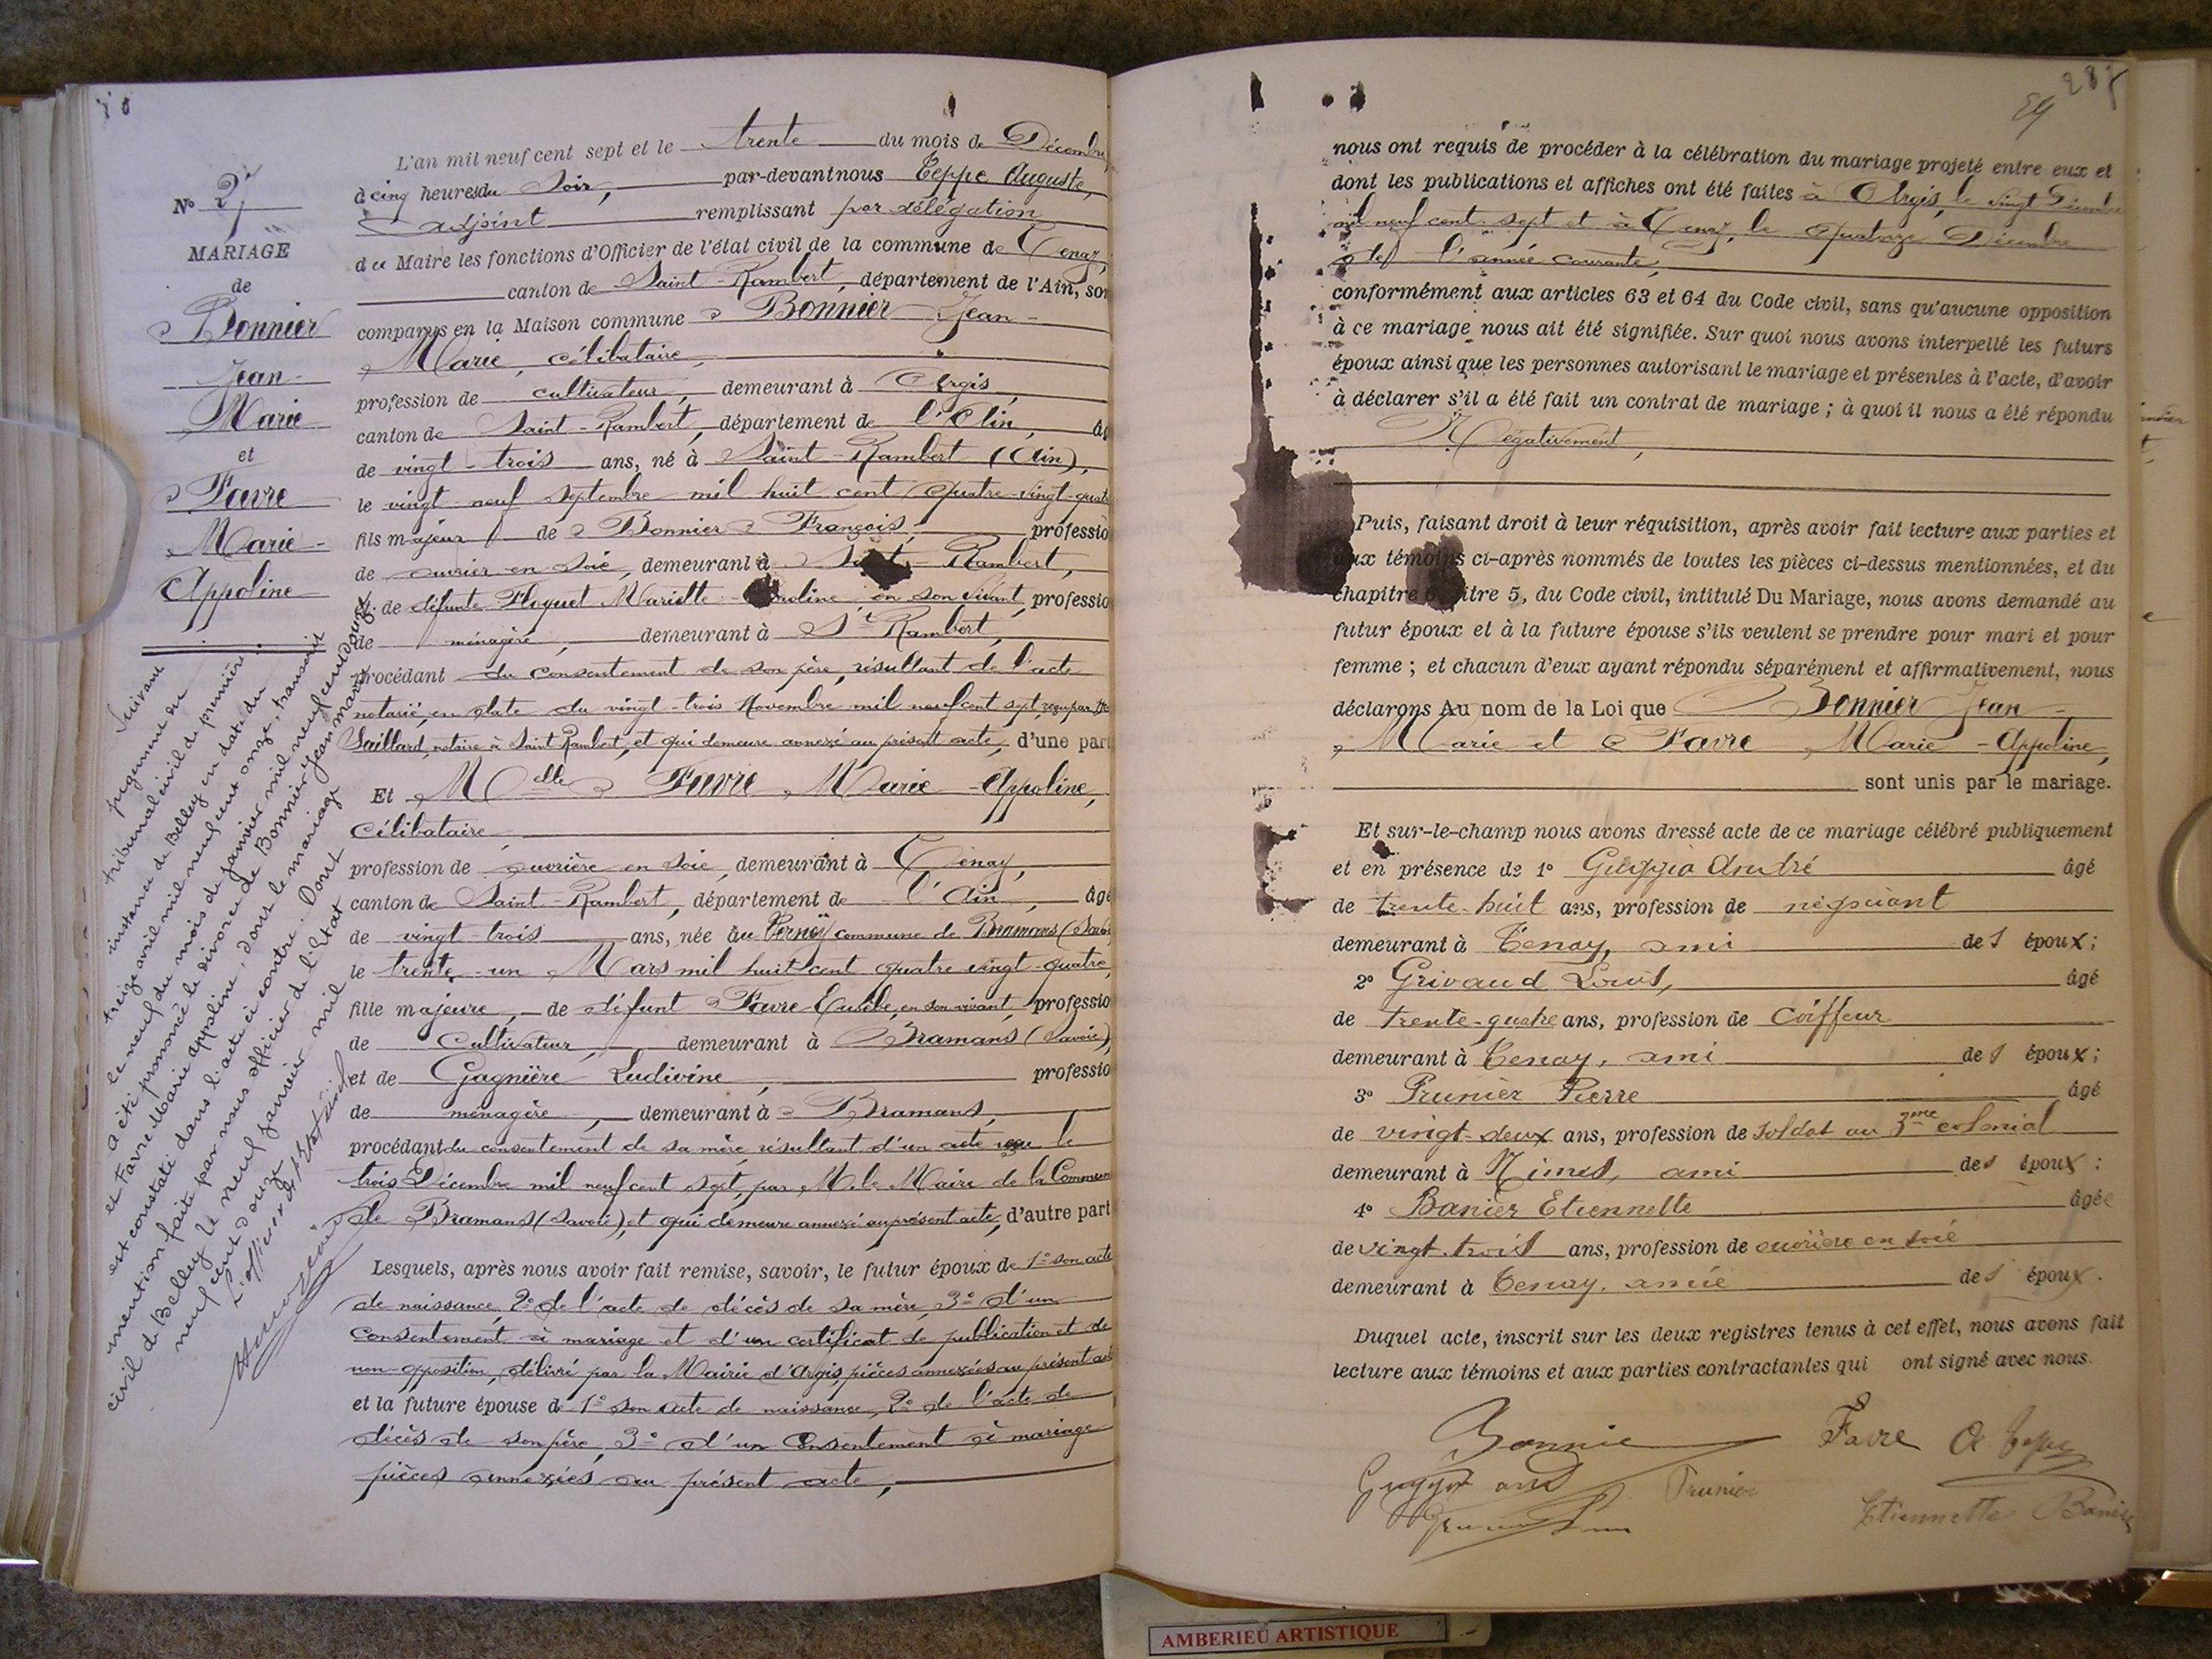 N° 27
MARIAGE
de
Bonnier
Jean-
Marie
et
Favre
Marie-
Appoline
Suivant
jugement du
tribunal civil de première
instance de Belley en date du
treize avril mil neuf cent onze, transcrit
le neuf du mois de janvier mil neuf cent douze
a été prononcé le divorce de Bonnier Jean Marie
et Favre Marie Appoline, dont le mariage
est constaté dans l'acte ci contre. Dont
mention faite par nous officier de l'état
civil de Belley le neuf janvier mil
neuf cent douze
L'officier de l'état civil
L'an mil neuf cent sept et le trente du mois de Décembre
à cinq heures du Soir, par-devant nous Teppe Auguste,
adjoint remplissant par délégation
du Maire les fonctions d'Officier de l'état civil de la commune de Tenay,
canton de Saint-Rambert, département de l'Ain, son
comparus en la Maison commune Bonnier Jean-
Marie, célibataire,
profession de cultivateur, demeurant à Argis,
canton de Saint-Rambert, département de l'Ain, âg
de vingt-trois ans, né à Saint-Rambert (Ain),
le vingt-neuf septembre mil huit cent quatre-vingt-quatr
fils majeur de Bonnier François, professio
de ouvrier en soie, demeurant à Saint-Rambert,
et de défunte Floquet Mariette en son vivant, professio
de ménagère, demeurant à St Rambert,
procédant du consentement de son père, résultant de l'acte
notarié, en date du vingt-trois Novembre mil neuf cent sept, reçu par Me
Saillard, notaire à Saint Rambert, et qui demeure annexé au présent acte, d'une part
Et Melle Favre Marie-Appoline,
Célibataire
profession de ouvrière en soie, demeurant à Tenay,
canton de Saint-Rambert, département de l'Ain, âgé
de vingt-trois ans, née au Verney commune de Bramans (Savoie
le trente-un Mars mil huit cent quatre vingt-quatre,
fille majeure, de défunt Favre Eusèbe, en son vivant, professio
de Cultivateur, demeurant à Bramans (Savoie),
et de Gagnière Ludivine, professio
de ménagère, demeurant à Bramans,
procédant du consentement de sa mère, résultant d'un acte reçu le
trois Décembre mil neuf cent sept, par M. le Maire de la Commune
de Bramans (Savoie), et qui demeure annexé au présent acte, d'autre part
Lesquels, après nous avoir fait remise, savoir, le futur époux de 1° son acte
de naissance, 2° de l'acte de décès de sa mère, 3° d'un
consentement à mariage et d'un certificat de publication et de
non-opposition, délivré par la Mairie d'Argis, pièces annexées au présent acte
et la future épouse de 1° son acte de naissance, 2° de l'acte de
décès de son père, 3° d'un Consentement à mariage
pièces annexées au présent acte,
287
29
nous ont requis de procéder à la célébration du mariage projeté entre eux et
dont les publications et affiches ont été faites à Argis, le vingt Décembre
mil neuf cent sept et à Tenay, le Quatorze Décembre
de l'année courante,
conformément aux articles 63 et 64 du Code civil, sans qu'aucune opposition
à ce mariage nous ait été signifiée. Sur quoi nous avons interpellé les futurs
époux ainsi que les personnes autorisant le mariage et présentes à l'acte, d'avoir
à déclarer s'il a été fait un contrat de mariage ; à quoi il nous a été répondu
Négativement,
Puis, faisant droit à leur réquisition, après avoir fait lecture aux parties et
aux témoins ci-après nommés de toutes les pièces ci-dessus mentionnées, et du
chapitre 6, titre 5, du Code civil, intitulé Du Mariage, nous avons demandé au
futur époux et à la future épouse s'ils veulent se prendre pour mari et pour
femme ; et chacun d'eux ayant répondu séparément et affirmativement, nous
déclarons Au nom de la Loi que Bonnier Jean-
Marie et Favre Marie-Appoline,
sont unis par le mariage.
Et sur-le-champ nous avons dressé acte de ce mariage célébré publiquement
et en présence de 1° André âgé
de trente-huit ans, profession de négociant
demeurant à Tenay, ami des époux ;
2° Grivaud Louis, âgé
de trente-quatre ans, profession de Coiffeur
demeurant à Tenay, ami des époux ;
3° Prunier Pierre âgé
de vingt-deux ans, profession de Soldat au 3me colonial
demeurant à Nimes, ami des époux ;
4° Banier Etiennette âgée
de vingt-trois ans, profession de ouvrière en soie
demeurant à Tenay, amie des époux.
Duquel acte, inscrit sur les deux registres tenus à cet effet, nous avons fait
lecture aux témoins et aux parties contractantes qui ont signé avec nous.
Bonnie Favre A Teppe
Prunier
Etiennette Banier
AMBERIEU ARTISTIQUE